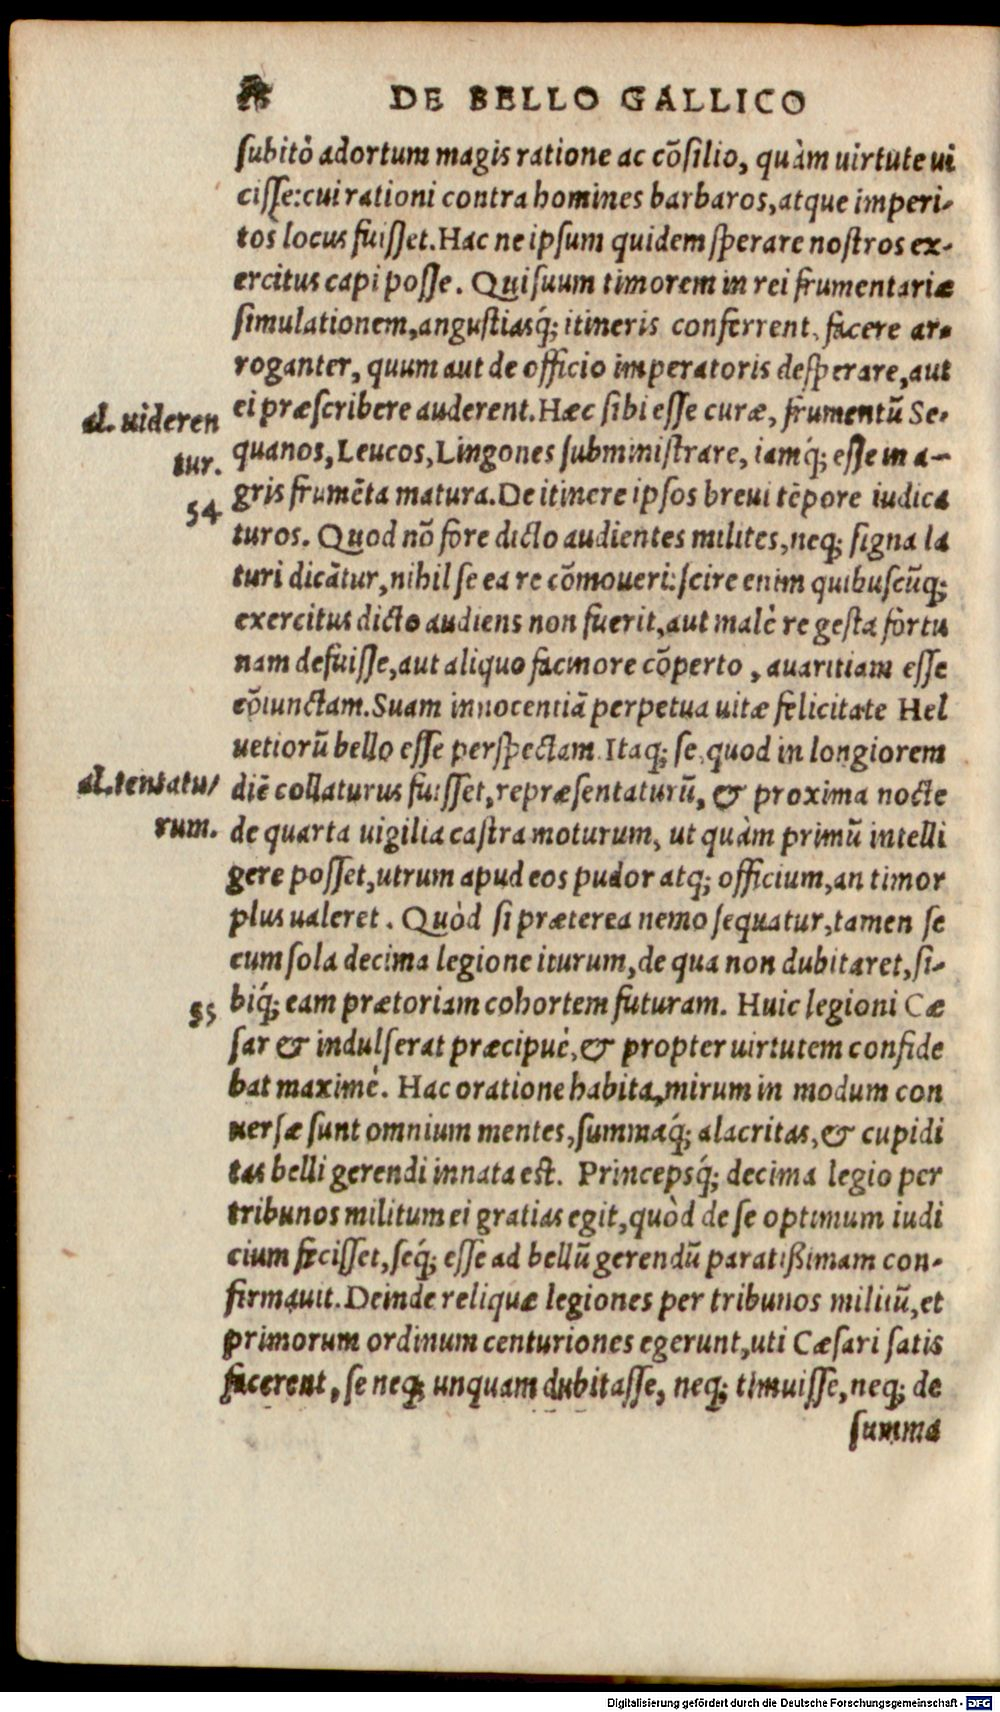 DE BELLO GALLICO
ſubitò adortum magis ratione ac cõſilio, quàm uirtute ui
ciſſe: cui rationi contra homines barbaros, atque imperi-
tos locus fuiſſet. Hac ne ipſum quidem ſperare noſtros ex-
ercitus capi poſſe. Qui ſuum timorem in rei frumentariæ
ſimulationem, anguſtiasq́; itineris conferrent, facere ar-
roganter, quum aut de officio imperatoris deſperare, aut
al. uideren
tur.
ei præſcribere auderent. Hæc ſibi eſſe curæ, frumentũ Se-
quanos, Leucos, Lingones ſubminiſtrare, iamq́; eſſe in a-
54
gris frumẽta matura. De itinere ipſos breui tẽpore iudica
turos. Quod nõ fore dicto audientes milites, neq; ſigna la
turi dicãtur, nihil ſe ea re cõmoueri: ſcire enim quibuſcũq;
exercitus dicto audiens non fuerit, aut malè re geſta fortu
nam defuiſſe, aut aliquo facinore cõperto, auaritiam eſſe
cõiunctam. Suam innocentiã perpetua uitæ felicitate Hel
uetiorũ bello eſſe perſpectam. Itaq; ſe, quod in longiorem
al. tentatu/
rum.
diẽ collaturus fuiſſet, repræſentaturũ, & proxima nocte
de quarta uigilia caſtra moturum, ut quàm primũ intelli
gere poſſet, utrum apud eos pudor atq; officium, an timor
plus ualeret. Quòd ſi præterea nemo ſequatur, tamen ſe
cum ſola decima legione iturum, de qua non dubitaret, ſi-
55
biq́; eam prætoriam cohortem futuram. Huic legioni Cæ
ſar & indulſerat præcipuè, & propter uirtutem confide
bat maximè. Hac oratione habita, mirum in modum con
uerſæ ſunt omnium mentes, ſummaq́; alacritas, & cupidi
tas belli gerendi innata eſt. Princepsq́; decima legio per
tribunos militum ei gratias egit, quòd de ſe optimum iudi
cium feciſſet, ſeq́; eſſe ad bellũ gerendũ paratißimam con-
firmauit. Deinde reliquæ legiones per tribunos militũ, et
primorum ordinum centuriones egerunt, uti Cæſari ſatis
facerent, ſe neq; unquam dubitaſſe, neq; timuiſſe, neq; de
ſumma
Digitalisierung gefördert durch die Deutsche Forschungsgemeinschaft - DFG